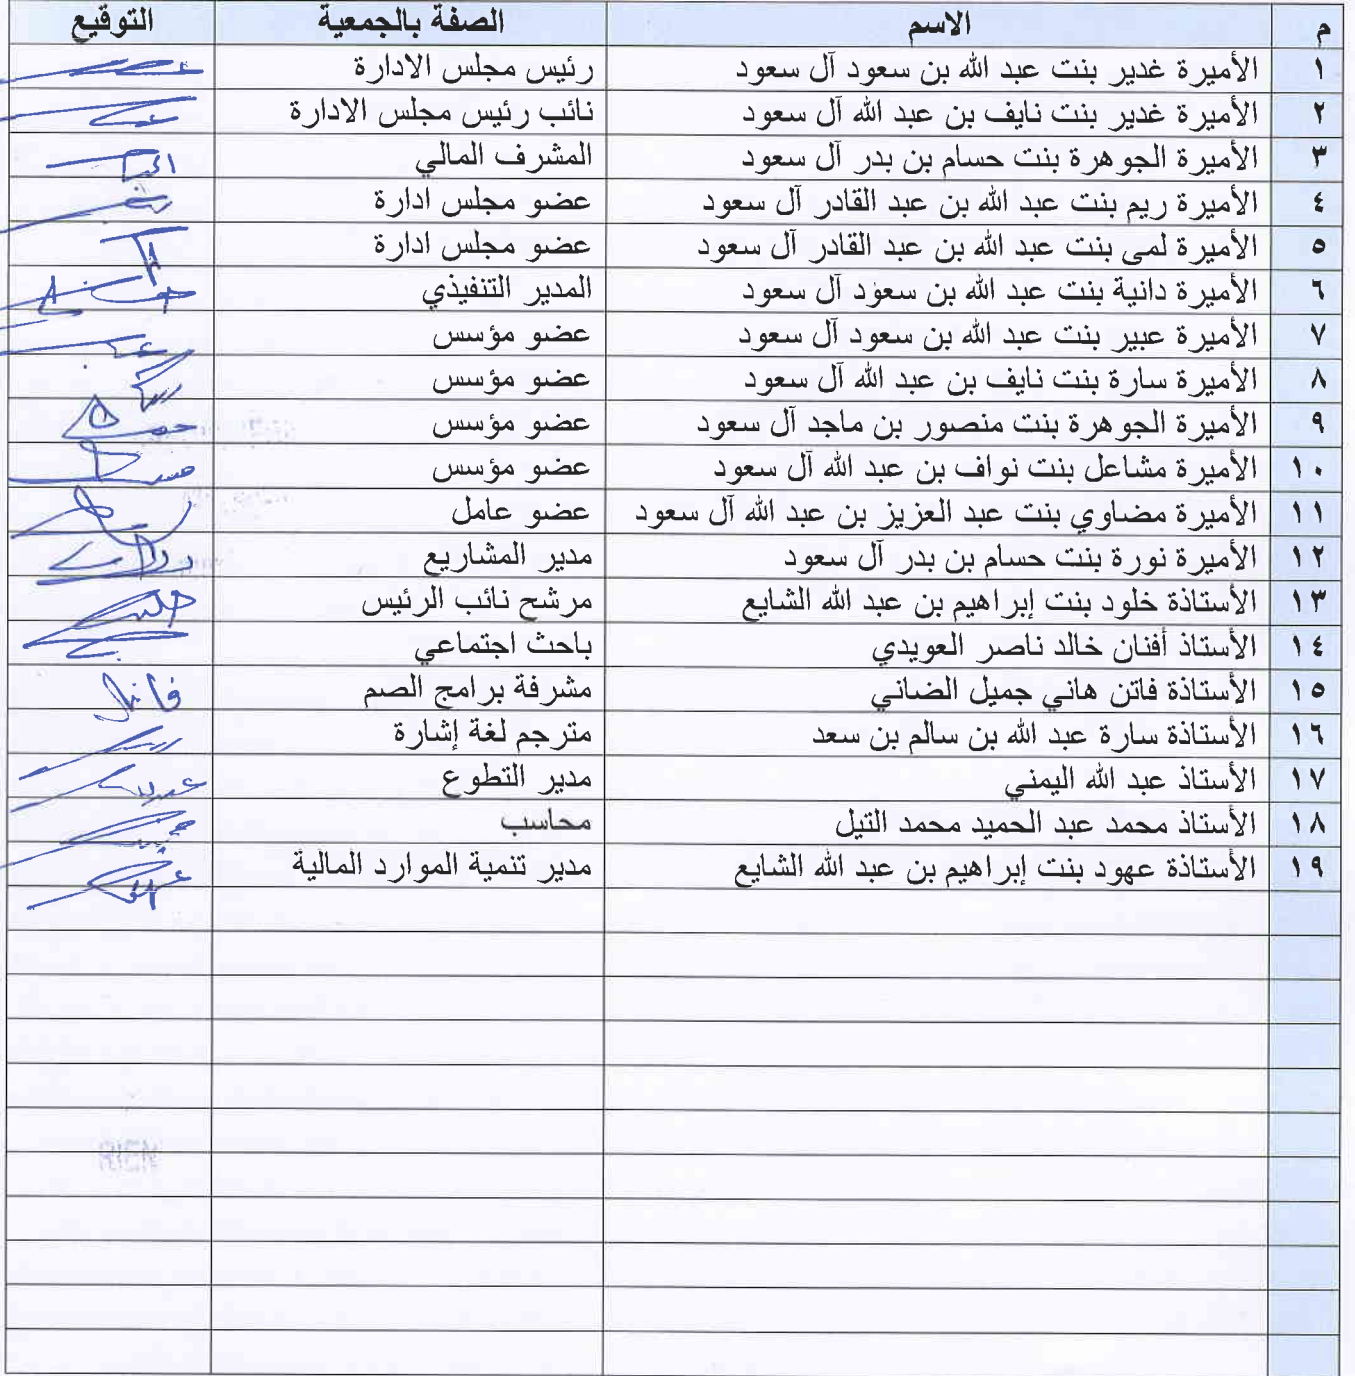 م الاسم الصفة بالجمعية التوقيع
١ الأميرة غدير بنت عبد الله بن سعود آل سعود رئيس مجلس الادارة
٢ الأميرة غدير بنت نايف بن عبد الله آل سعود نائب رئيس مجلس الادارة
٣ الأميرة الجوهرة بنت حسام بن بدر آل سعود المشرف المالي
٤ الأميرة ريم بنت عبد الله بن عبد القادر آل سعود عضو مجلس ادارة
٥ الأميرة لمى بنت عبد الله بن عبد القادر آل سعود عضو مجلس ادارة
٦ الأميرة دانية بنت عبد الله بن سعود آل سعود المدير التنفيذي
٧ الأميرة عبير بنت عبد الله بن سعود آل سعود عضو مؤسس
٨ الأميرة سارة بنت نايف بن عبد الله آل سعود عضو مؤسس
٩ الأميرة الجوهرة بنت منصور بن ماجد آل سعود عضو مؤسس
١٠ الأميرة مشاعل بنت نواف بن عبد الله آل سعود عضو مؤسس
١١ الأميرة مضاوي بنت عبد العزيز بن عبد الله آل سعود عضو عامل
١٢ الأميرة نورة بنت حسام بن بدر آل سعود مدير المشاريع
١٣ الأستاذة خلود بنت إبراهيم بن عبد الله الشايع مرشح نائب الرئيس
١٤ الأستاذ أفنان خالد ناصر العويدي باحث اجتماعي
١٥ الأستاذة فاتن هاني جميل الضاني مشرفة برامج الصم
١٦ الأستاذة سارة عبد الله بن سالم بن سعد مترجم لغة إشارة
١٧ الأستاذ عبد الله اليمني مدير التطوع
١٨ الأستاذ محمد عبد الحميد محمد التيل محاسب
١٩ الأستاذة عهود بنت إبراهيم بن عبد الله الشايع مدير تنمية الموارد المالية